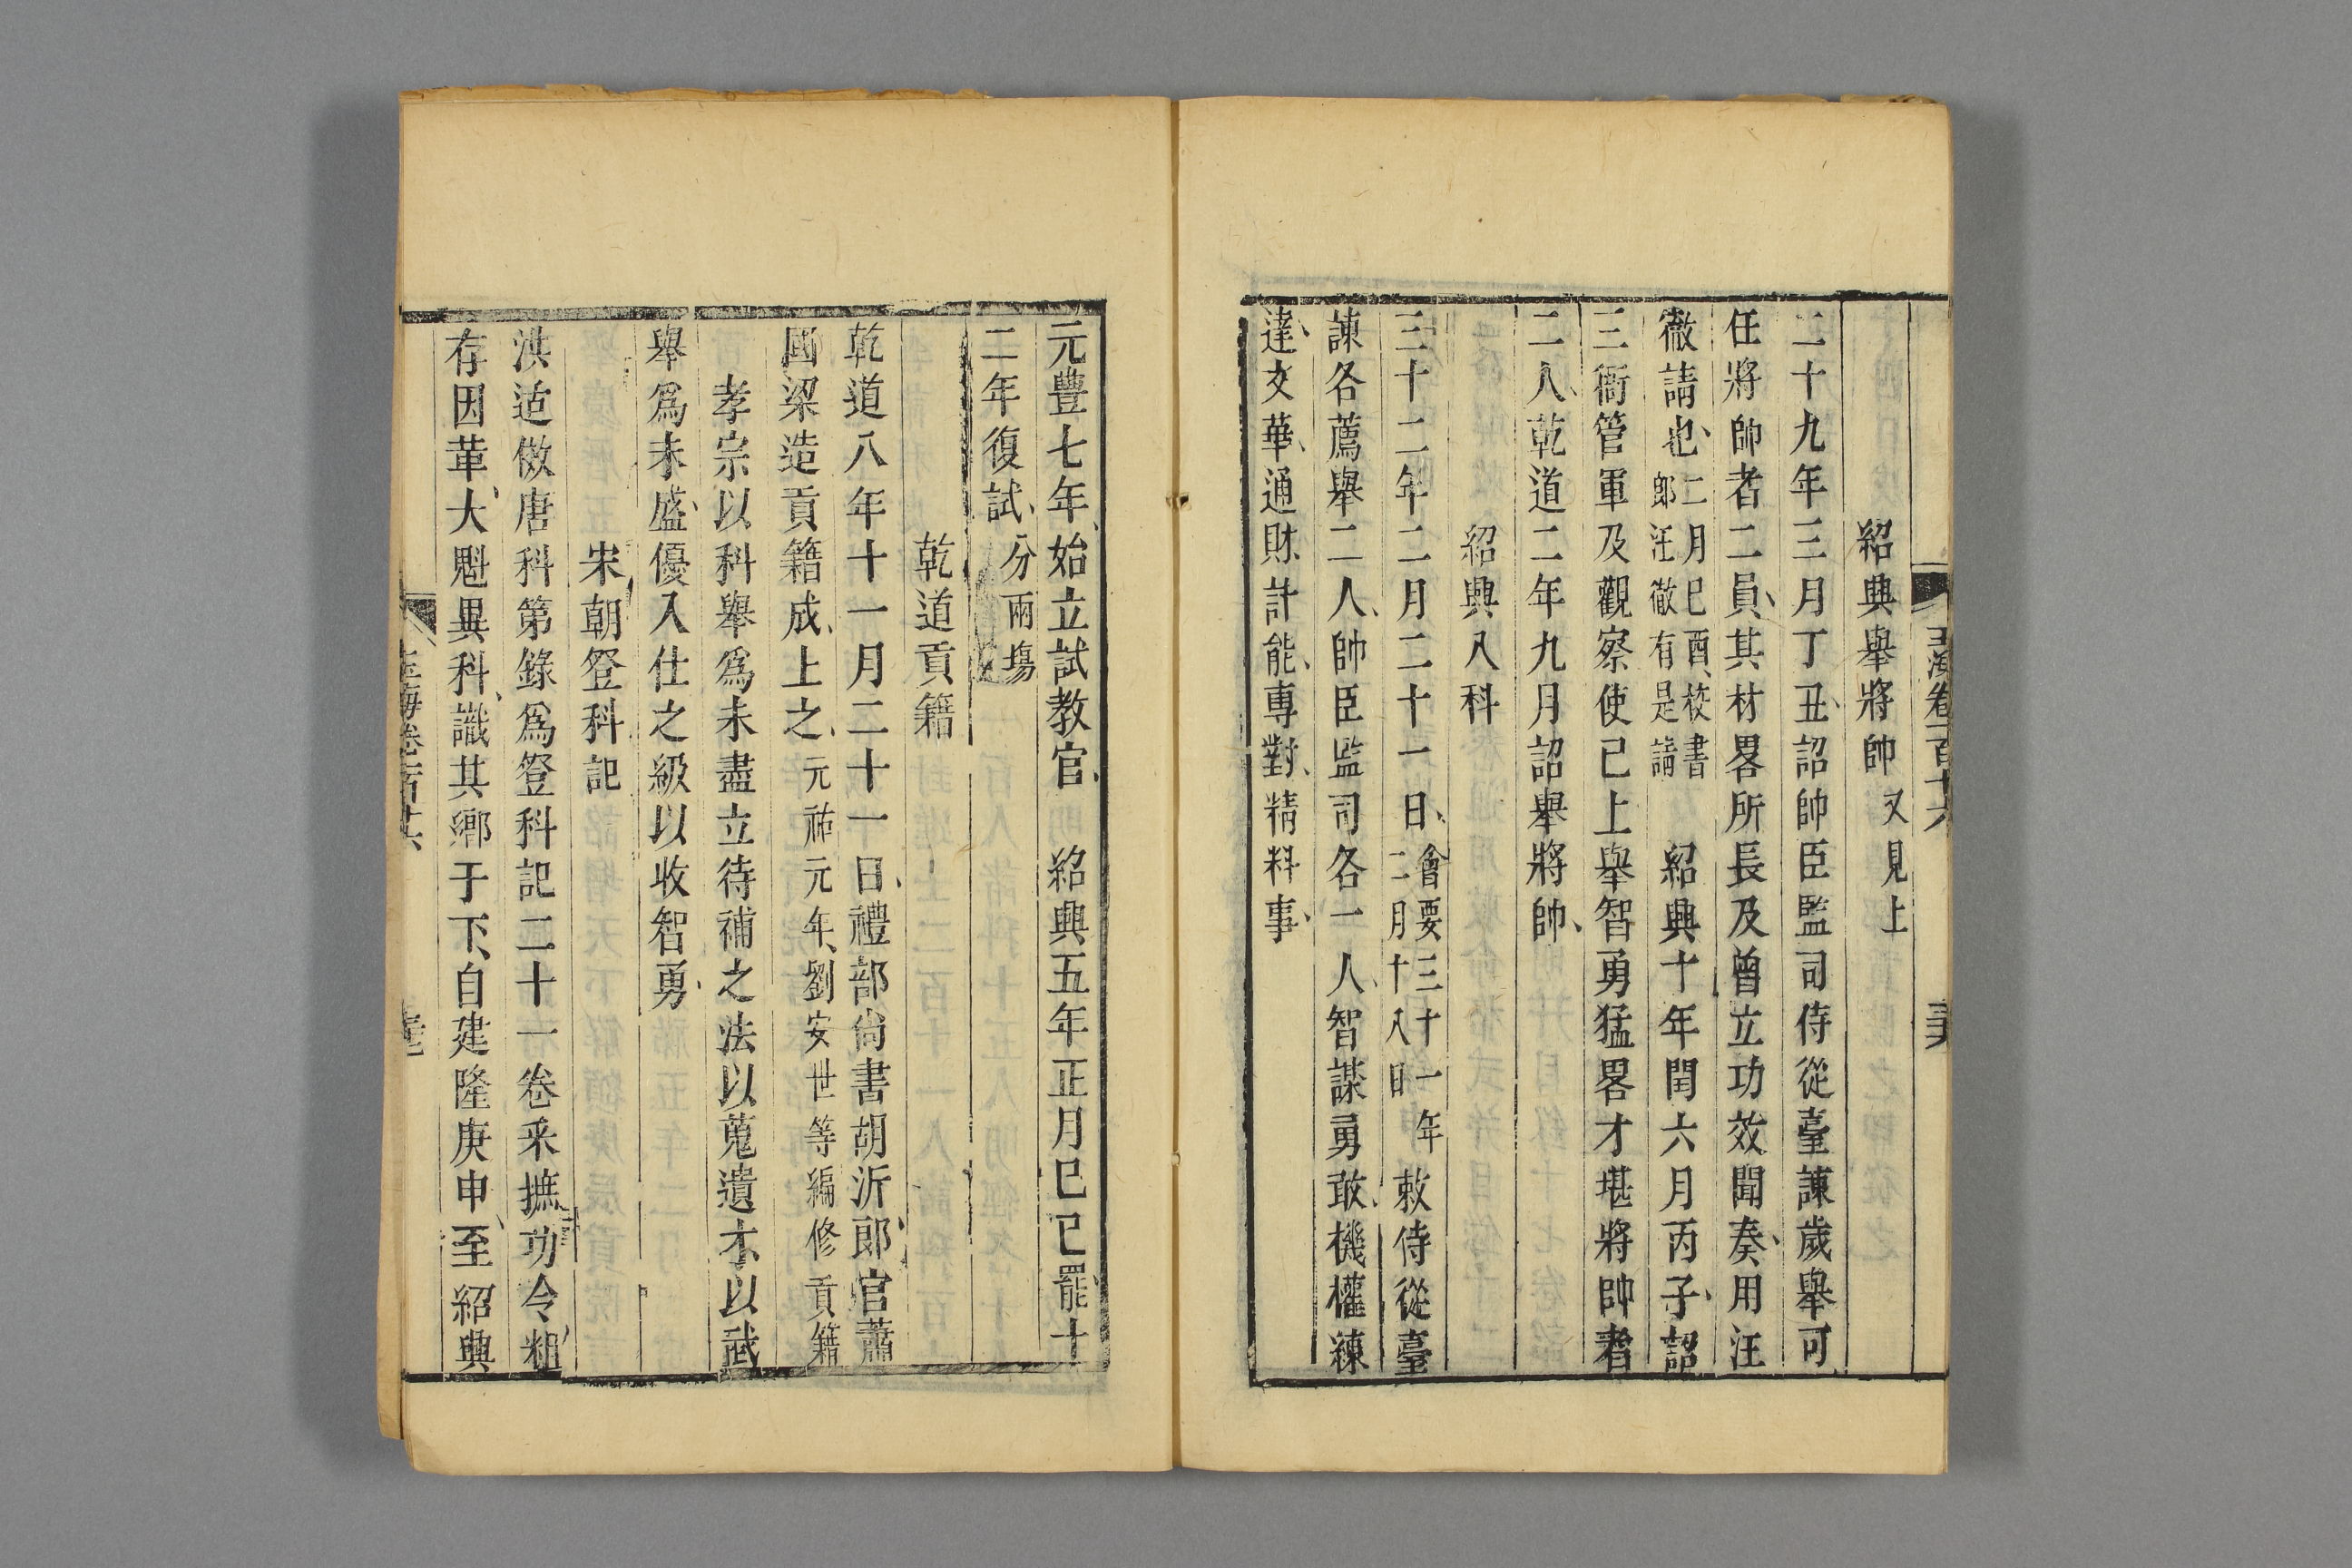 玉海卷一百十六
紹興舉將帥又見上
二十九年三月丁丑詔帥臣監司侍從臺諫歲舉可
任將帥者二員其材畧所長及曾立功效聞奏用汪
徹請也二月己酉校書郎汪徹有是請 紹興十年閏六月丙子詔
三衙管軍及觀察使已上舉智勇猛畧才堪將帥者
二人乾道二年九月詔舉將帥
紹興八科
三十二年二月二十一日會要三十一年二月十八日敕侍從臺
諫各薦舉二人帥臣監司各一人智謀勇敢機權練
達文華通財計能專對精料事
元豐七年始立試教官 紹興五年正月巳巳罷十
二年復試分兩塲
乾道貢籍
乾道八年十一月二十一日禮部尚書胡沂郎官蕭
國梁造貢籍成上之元祐元年劉安世等編修貢籍
孝宗以科舉爲未盡立待補之法以蒐遺才以武
舉爲未盛優入仕之級以收智勇
宋朝登科記
洪适倣唐科第錄爲登科記二十一卷采摭功令粗
存因革大魁異科識其鄉于下自建隆庚申至紹興
玉海卷一百十六